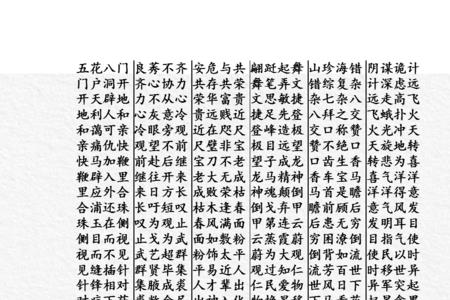 五花八门 良莠不齐 安危与共 翩跹起舞 山珍海错 阴谋诡计
门户洞开 齐心协力 共存共荣 舞笔弄文 错综复杂 计深虑远
开天辟地 力不从心 荣华富贵 文思敏捷 杂七杂八 远走高飞
地利人和 心灰意冷 贵远贱近 捷足先登 八拜之交 飞蛾扑火
和蔼可亲 冷眼旁观 近在咫尺 登峰造极 交口称赞 火光冲天
亲痛仇快 观望不前 尺璧非宝 极目远望 赞不绝口 天旋地转
快马加鞭 前赴后继 宝刀不老 望子成龙 口齿生香 转悲为喜
鞭辟入里 继往开来 老大无成 龙马精神 香车宝马 喜气洋洋
里应外合 来日方长 成败荣枯 神魂颠倒 马首是瞻 洋洋得意
合浦还珠 长吁短叹 枯木逢春 倒戈弃甲 瞻前顾后 意气风发
珠玉在侧 叹为观止 春风满面 甲第连云 后患无穷 发明耳目
侧目而视 止戈为武 面如敷粉 云蒸霞蔚 穷困潦倒 目指气使
视而不见 武艺超群 粉饰太平 蔚为大观 倒背如流 使民以时
见缝插针 群贤毕集 平易近人 观过知仁 流芳百世 时移世异
针锋相对 集腋成裘 人才辈出 仁民爱物 世风日下 异军突起